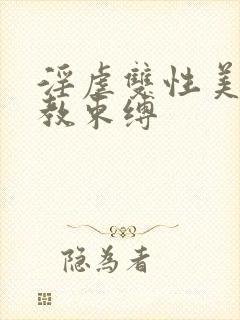 淫虐雙性美
教束缚
隐为者